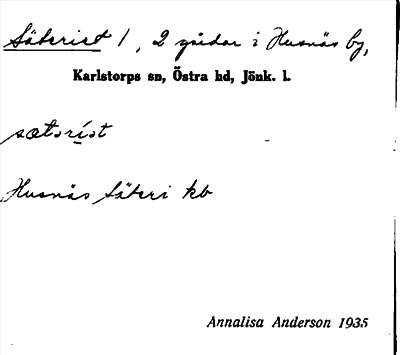 Säterist 1, 2 gårdar i Husnäs by,
Karlstorps sn, Östra hd, Jönk. l.
sætəríst
Husnäs Säteri kb
Annalisa Anderson 1935